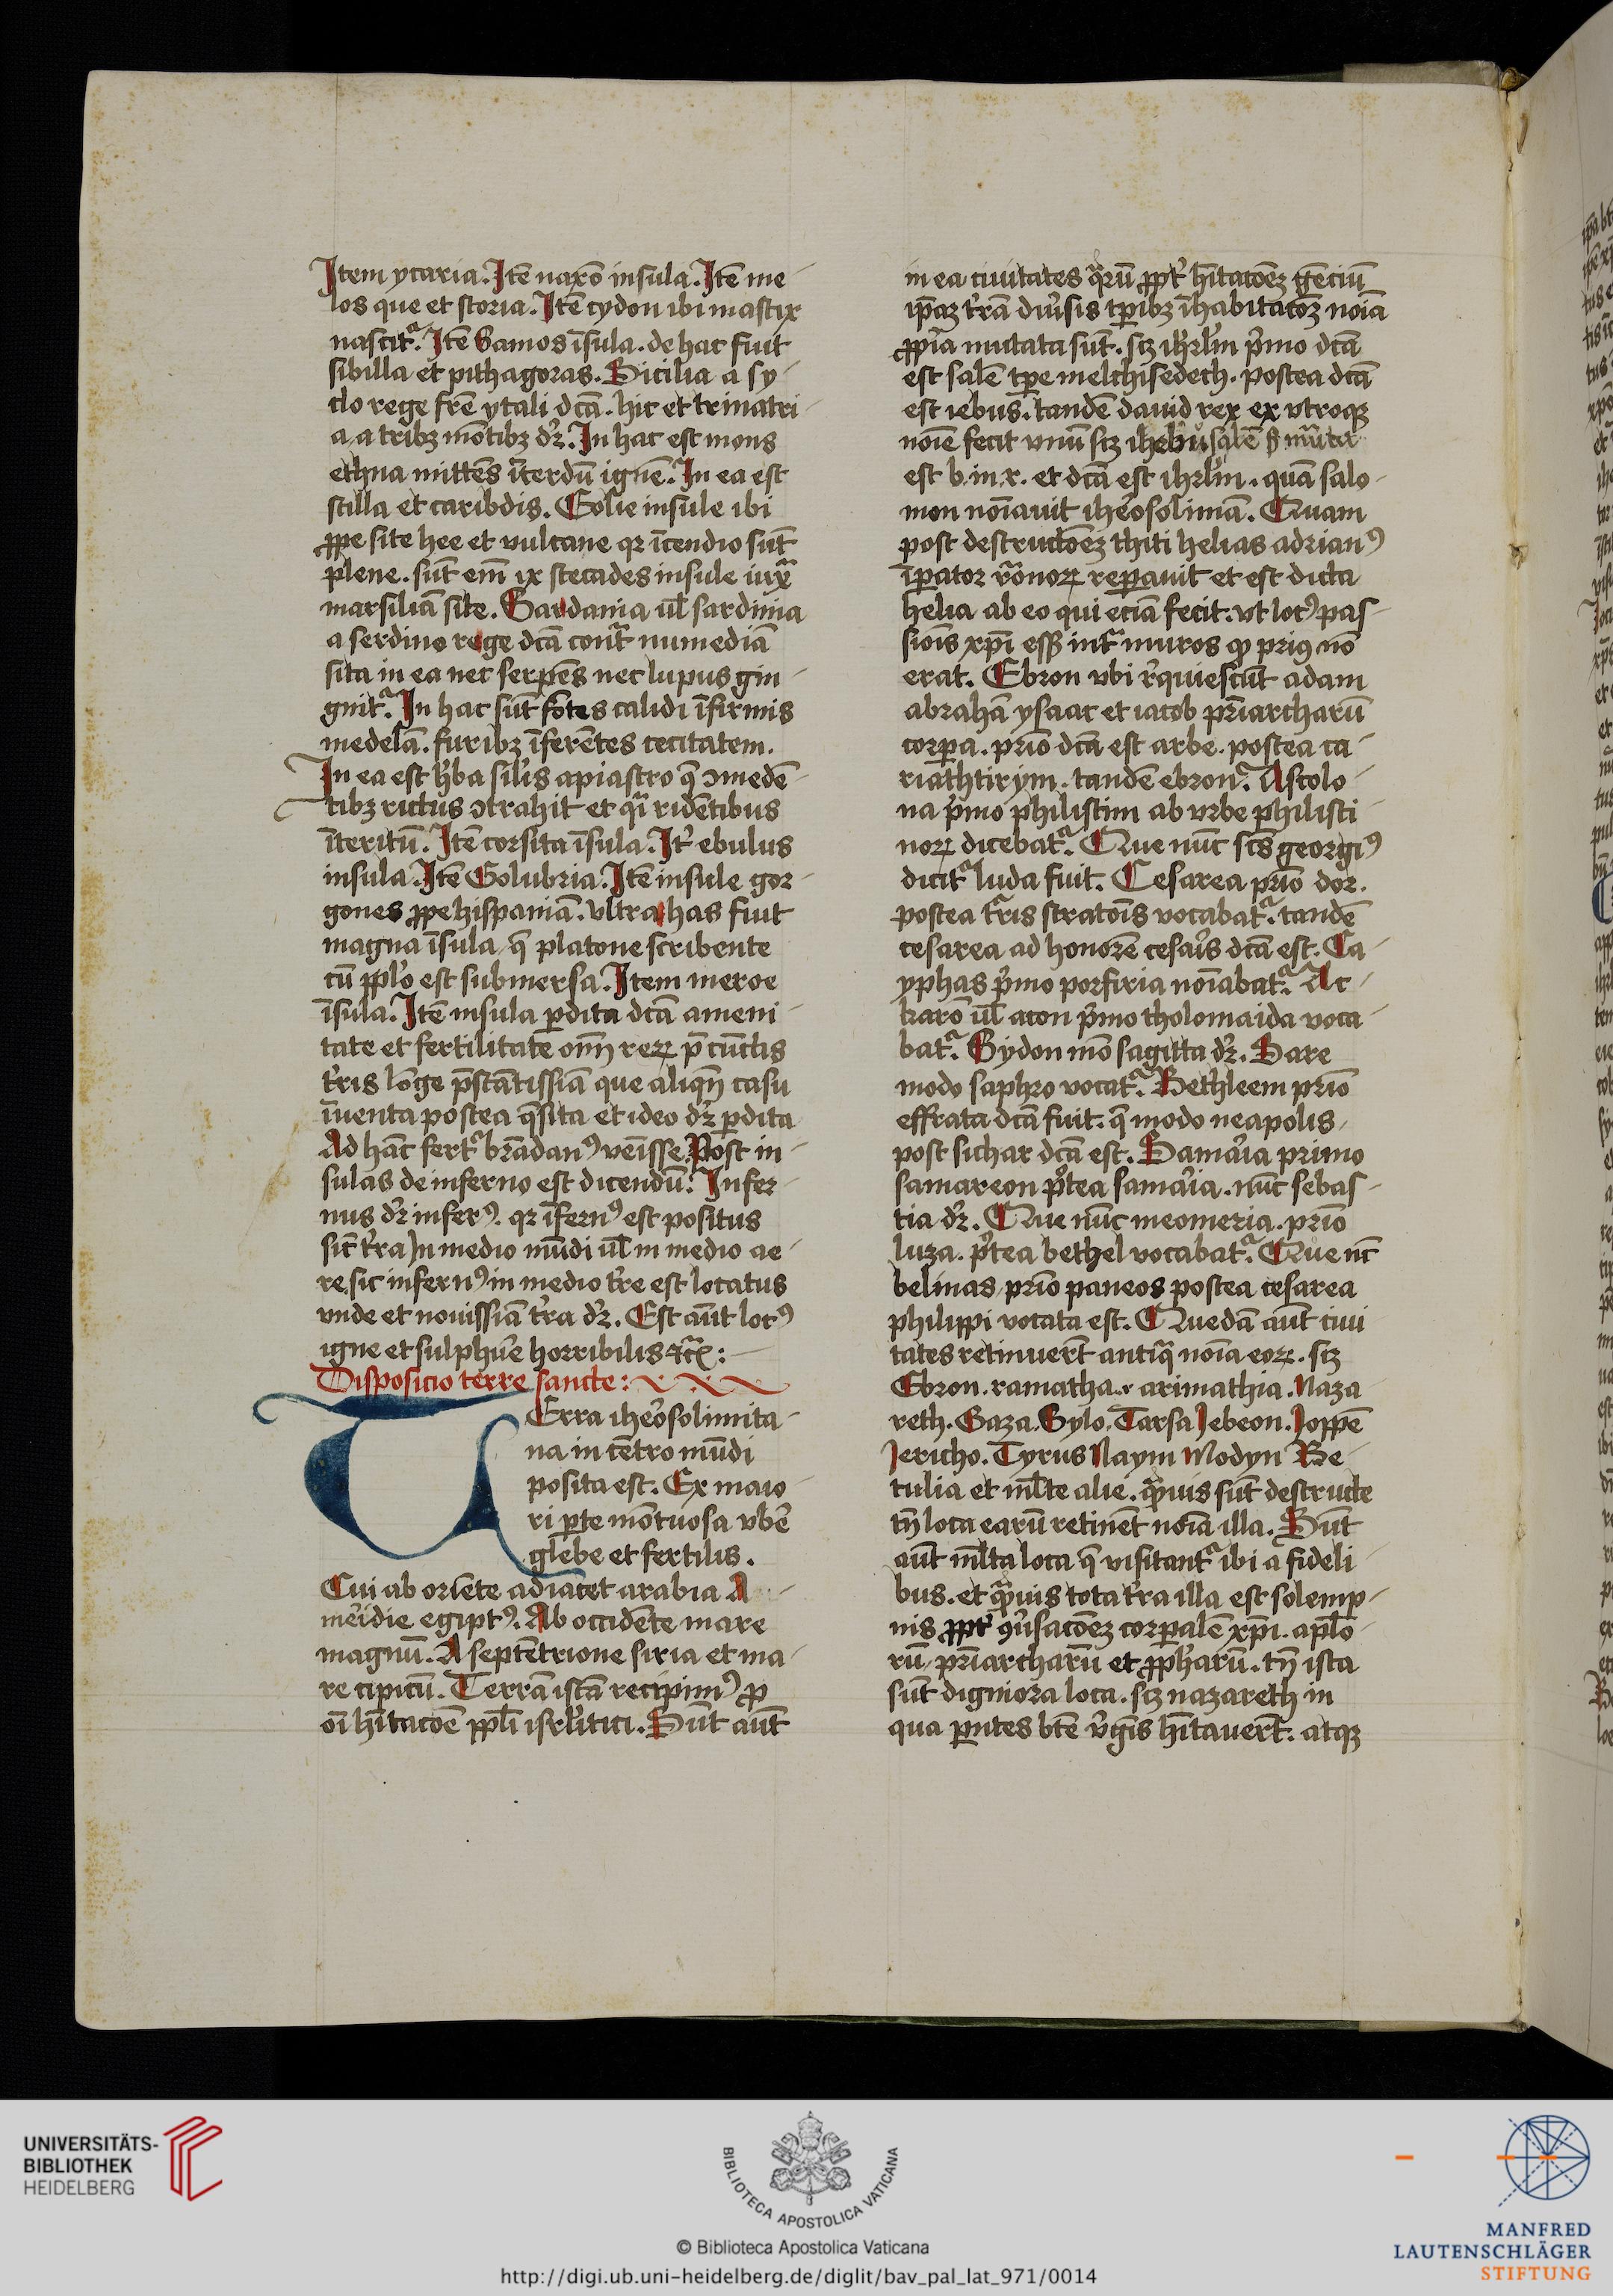 Item ycaria. Itē naxō insula. Itē me-
los que et storia. Itē cydon ibi mastix
nascitᷓ. Itē Samos īsula. de hac fuit
sibilla et pithagoras. Sicilia a sy-
clo rege frē ytali dc̄a. hic et trinacri-
a, a tribꝫ mōtibꝫ dꝛ̄. In hac est mons
ethna mittēs īterdū ignē. In ea est
scilla et caribdis. Eolie insule ibi
ꝓpe site hee et vulcane qꝛ īcendio sūt
plene. sūt em̄ ix stecades insule iuxᷓ
marsiliā site. Sardania ul̄ sardinia
a serdino rege dc̄a contᷓ numediā
sita in ea nec serpēs nec lupus gin-
gnitᷓ. In hac sūt fotes calidi īfirmis
medelā. furibꝫ īferētes cecitatem.
In ea est h̓ba sil̓is apiastro q̄ ꝯmedē-
tibꝫ rictus ꝯtrahit et qᷓi ridētibus
īteritū. Itē corsita īsula. It̓ ebulus
insula. Itē Colubria. Itē insule gor-
gones ꝓpe hispaniā. vltra has fuit
magna īsula q̄ platone scribente
cū ppl̓o est submersa. Item meroe
īsula. Itē insula ꝑdita dc̄a ameni-
tate et fertilitate om̄ reꝝ p̄ cūctis
t̓ris lōge p̄stātissiā que aliqn̄ casu
īuenta postea q̄sita et ideo dꝛ̄ ꝑdita
Ad hāc fert̓ brādanꝰ veīsse. Post in-
sulas de inferno est dicendū. Infer-
nus dꝛ̄ inferꝰ. qꝛ īfernꝰ est positus
sic̄ t̓ra In medio mūdi ul̄ in medio ae-
re, sic infernꝰ in medio t̓re est locatus
vnde et nouissiā t̓ra dꝛ̄. Est aūt locꝰ
igne et sulphu̓e horribilis ⁊cᷓ:
Disposicio terre sancte:
TErra ihe̓osolimita-
na in cētro mūdi
posita est. Ex maio-
ri ꝑte mōtuosa vbē
glebe et fertilis.
Cui ab oriēte adiacet arabia A
me̓idie egiptꝰ. Ab occidēte mare
magnū. A septētrione siria et ma-
re cipicū. Terrā istā recipimꝰ ꝓ
oī hītacōē ppl̄i isrl̓itici. Sūt aūt
in ea ciuitates qᷓrū ꝓpt̓ hītacōeꝫ gēciū
ip̄aꝫ t̓rā diu̓sis tꝑibꝫ īhabitacōꝫ noīa
ꝓpīa mutata sūt. scꝫ ihrl̓m p̓mo dc̄a
est salē tꝑe melchisedech. postea dc̄a
est iebus. tandē dauid rex ex vtroqꝫ
noīe fecit vnū scꝫ ihebusalē
est b. in. r. et dc̄a est ihrl̓m. quā salo-
mon noīauit ihe̓osolimā. Quam
post destructōeꝫ thiti helias adrianꝰ
īꝑator rōnoꝝ reꝑauit et est dicta
helia ab eo qui eciā fecit. vt locꝰ pas-
siōis xp̄i eſſꝫ intᷓ muros qꝫ priꝰ nō
erat. Ebron vbi r̓quiescūt adam
abrahā ysaac et iacob pr̄iarcharū
corꝑa. prīo dc̄a est arbe. postea ca-
riathtirym. tandē ebronᷓ. Ascolo-
na p̓mo philistim ab vrbe philisti-
noꝝ dicebatᷓ. Que nūc scs̄ georgiꝰ
dicitᷓ luda fuit. Cesarea prīo dor.
postea tᷓris stratōis vocabatᷓ. tandē
cesarea ad honorē cesa̓is dc̄a est. Ca-
yphas p̓mo porfiria noīabatᷓ. Ac-
karō ul̄ acon p̓mo tholomaida voca-
batᷓ. Sydon mō sagitta dꝛ̄. Sare
modo saphro vocatᷓ. Bethleem prīo
effrata dc̄a fuit. q̄ modo neapolis,
post sichar dc̄a est. Sama̓ia primo
samareon p̓tea sama̓ia. nūc sebas-
tia dꝛ̄. Que nūc meomeria. prīo
luza. p̓tea bethel vocabatᷓ. Que nc̄
belinas prīo paneos postea cesarea
philippi vocata est. Quedā aūt ciui
tates retinuerūt antiqᷓ noīa eoꝝ. scꝫ
Ebron. ramatha. r arimathia. Naza
reth. Gaza. Sylo. Tarsa Jebeon. Joppē
Jericho. Tyrus Naym Modyn Be-
tulia et ml̄te alie. qᷓuis sūt destructe
tn̄ loca earū retinēt noīa illa. Sūt
aūt ml̄ta loca q̄ visitantᷓ ibi a fideli-
bus. et qᷓuis tota t̓ra illa est solemp-
nis ꝓpt̓ ꝯu̓sacōeꝫ corꝑalē xp̄i. apl̄o-
rū, pr̄iarcharū et ꝓphārū. tn̄ ista
sūt digniora loca. scꝫ nazareth in
qua ꝑntes btē v̓gīs hītauerūt. atqꝫ
UNIVERSITÄTS-
BIBLIOTHEK
HEIDELBERG
BIBLIOTECA APOSTOLICA VATICANA
© Biblioteca Apostolica Vaticana
http://digi.ub.uni-heidelberg.de/diglit/bav_pal_lat_971/0014
MANFRED
LAUTENSCHLÄGER
STIFTUNG